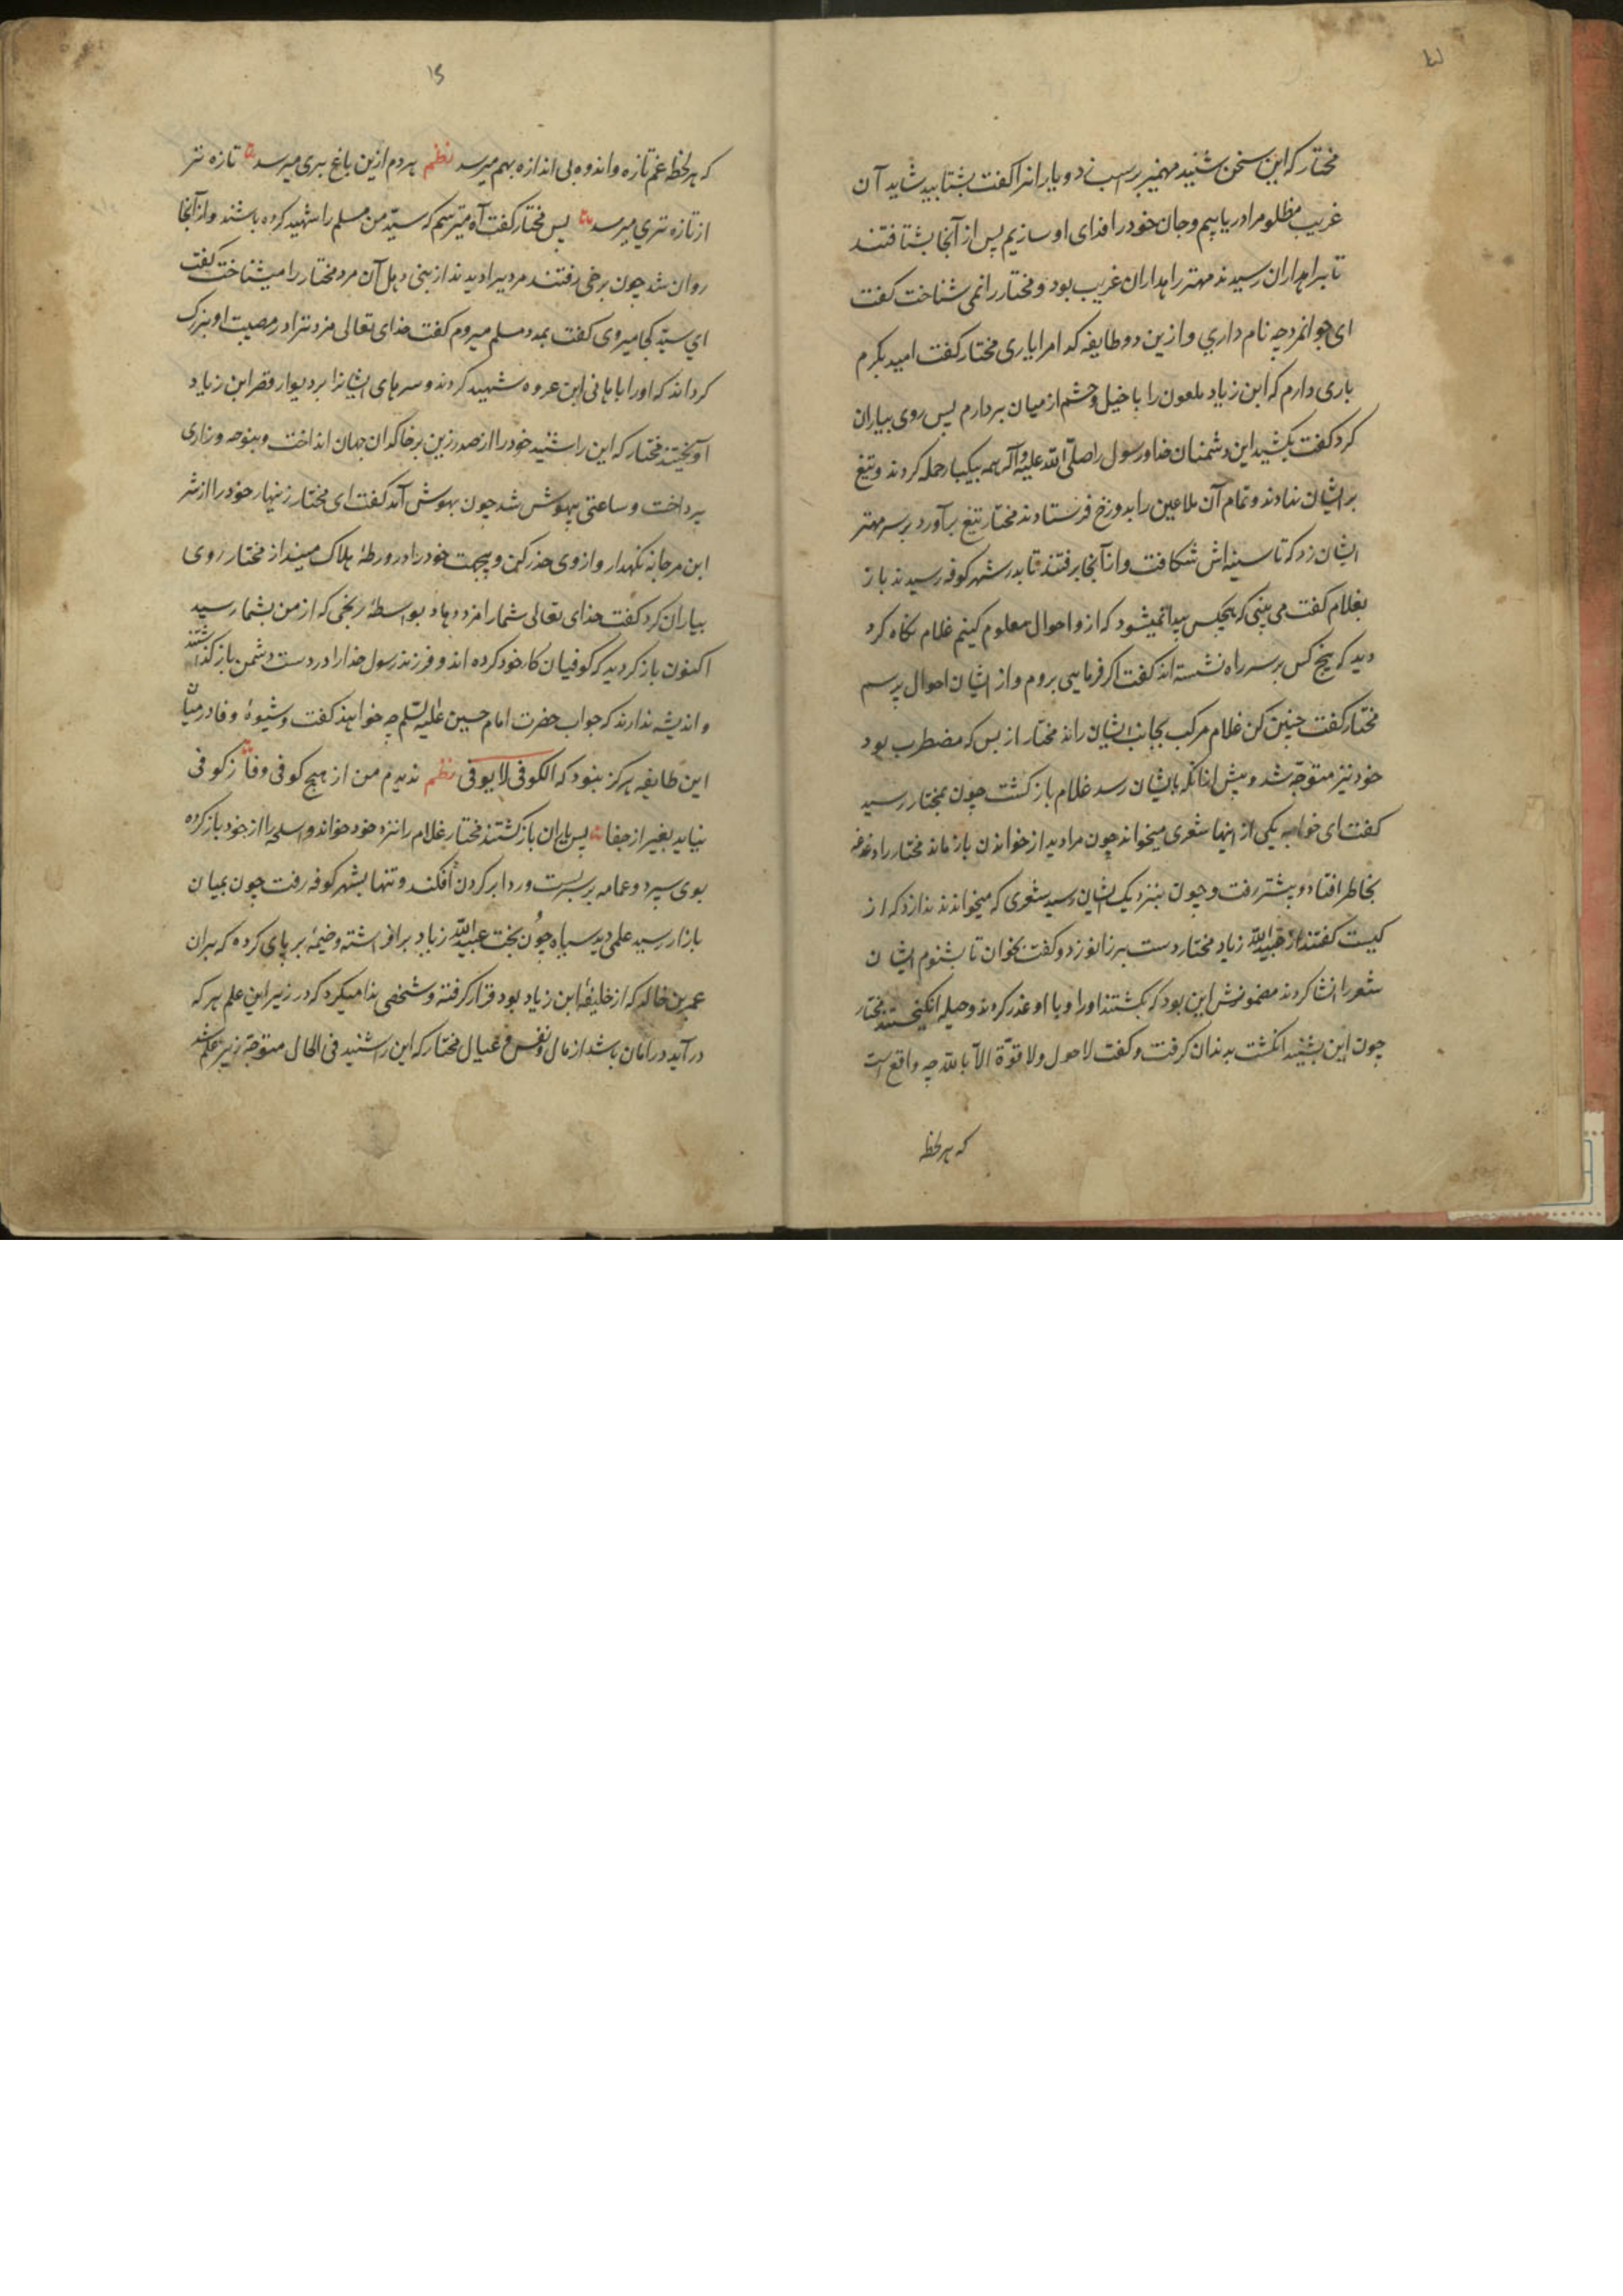 مختار که این سخن شنید مهمیز بر اسب زد و یارانرا گفت بشتابید شاید آن
غریب مظلوم را دریابیم و جان خود را فدای او سازیم پس از آنجا بشتافتند
تا براهداران رسیدند مهتر راهداران غریب بود و مختار را نمی شناخت گفت
ای جوانمرد چه نام داری و ازین دو طایفه کدامرا یاری مختار گفت امید بکرم
باری دارم که ابن زیاد ملعون را با خیل و حشم از میان بردارم پس روی بیاران
کرد گفت بکشید این دشمنان خدا و رسول را صلی الله علیه و آله همه بیکبار حمله کردند و تیغ
بر ایشان نهادند و تمام آن ملاعین را بدوزخ فرستادند مختار تیغ برآورد بر سر مهتر
ایشان زد که تا سینه اش شکافت و از آنجا برفتند تا بدر شهر کوفه رسیدند باز
بغلام گفت می بینی که هیچکس پیدا نمیشود که ازو احوال معلوم کنیم غلام نگاه کرد
دید که پنج کس بر سر راه نشسته اند گفت اگر فرمایی بروم و از ایشان احوال پرسم
مختار گفت چنین کن غلام مرکب بجانب ایشان راند مختار از بس که مضطرب بود
خود نیز متوجه شد و پیش از آنکه بایشان رسد غلام باز گشت چون بمختار رسید
گفت ای خواجه یکی از اینها شعری میخواند چون مرا دید از خواندن باز ماند مختار را دغدغه
بخاطر افتاد و پیشتر رفت و چون بنزدیک ایشان رسید شعری که میخواندند
کیست گفتند از عبیدالله زیاد مختار دست بر زانو زد و گفت بخوان تا بشنوم ایشان
شعر را انشا کردند مضمونش این بود که بکشتند او را و با او غدر کردند و حیله انگیختند مختار
چون این بشنید انگشت بدندان گرفت و گفت لا حول ولا قوة الا بالله چه واقع است
که هر لحظه
۱۵
که هر لحظه غم تازه و اندوه بی اندازه بهم میرسد نظم هر دم ازین باغ بری میرسد تازه تر
از تازه تری میرسد پس مختار گفت آه میترسم که سید من مسلم را شهید کرده باشند و از آنجا
روان شد چون برخی رفتند مردیرا دیدند از بنی ذهل آن مرد مختار را میشناخت گفت
ای سید کجا میروی گفت بمدد مسلم میروم گفت خدای تعالی مزد ترا در مصیبت او بزرگ
گرداند که او را با هانی ابن عروه شهید کردند و سرهای ایشانرا بر دیوار قصر ابن زیاد
آویختند مختار که این را شنید خود را از صدر زین بر خاکدان جهان انداخت و بنوحه و زاری
پرداخت و ساعتی بیهوش شد چون بهوش آمد گفت ای مختار زنهار خود را از شر
ابن مرجانه نگهدار و از وی حذر کن و بجهت خود را در ورطهٔ هلاک مینداز مختار روی
بیاران کرد گفت خدای تعالی شما را مزد دهاد بواسطهٔ رنجی که از من بشما رسید
اکنون باز گردید که کوفیان کار خود کرده اند و فرزند رسول خدا را در دست دشمن باز گذاشتند
و اندیشه ندارند که جواب حضرت امام حسین علیه السلم چه خواهند گفت و شیوهٔ وفا در میان
این طایفه هرگز نبود که الکوفی لا یوفی نظم ندیدم من از هیچ کوفی وفا ز کوفی
نیاید بغیر از جفا پس یاران باز گشتند مختار غلام را نزد خود خواند و اسلحه را از خود باز کرده
بوی سپرد و عمامه بر سر بست و ردا بر گردن افکند و تنها بشهر کوفه رفت چون بمیان
بازار رسید علمی دید سیاه چون بخت عبیدالله زیاد بر افراشته و خیمهٔ بر پای کرده که بران
عمر بن خالد که از خلیفهٔ ابن زیاد بود قرار گرفته و شخصی ندا میکرد که در زیر این علم هر که
در آید در امان باشد از مال و نفس و عیال مختار که این را شنید فی الحال متوجه زیر علم شد